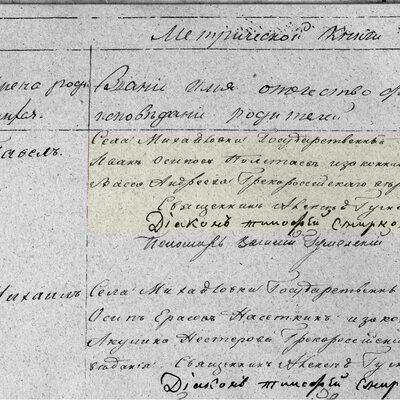 Метрической Книги
Звание имя отечество
исповедании родителей
Павелъ.
Села Михайловки Государственнъ
Иванъ Осиповъ Полтаевъ и законн
Васса Андреева Грекороссійскаго
Священникъ Алексѣй
Діаконъ Тимофей Смирно
Пономарь Василій
Михаилъ
Села Михайловки Государственнъ
Осипъ Ерасовъ и зако
Акулина Нестерова Грекороссійск
Священникъ Алексѣй
Діаконъ Тимофей Смирн